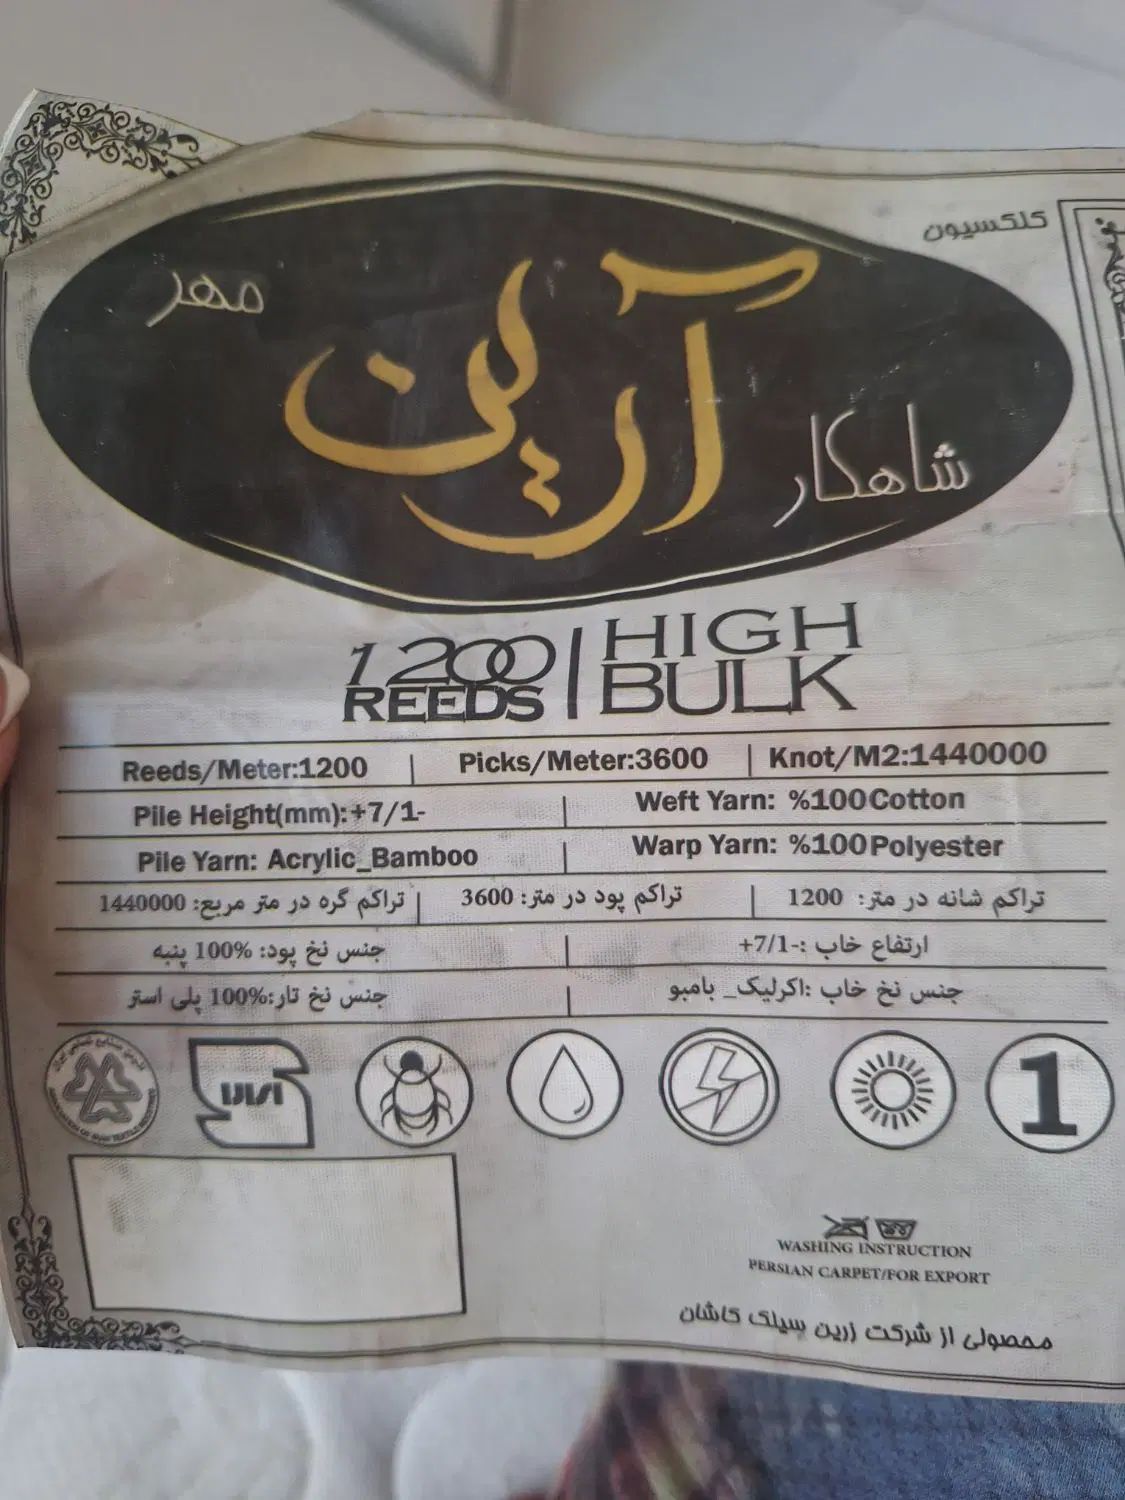 کلکسیون
شاهکار آرین مهر
1200 REEDS | HIGH BULK
Reeds/Meter:1200 | Picks/Meter:3600 | Knot/M2:1440000
Pile Height(mm):+7/1- | Weft Yarn: %100Cotton
Pile Yarn: Acrylic_Bamboo | Warp Yarn: %100Polyester
تراکم شانه در متر: 1200 | تراکم پود در متر: 3600 | تراکم گره در متر مربع: 1440000
ارتفاع خاب :-7/1+ | جنس نخ پود: 100% پنبه
جنس نخ خاب :اکرلیک_ بامبو | جنس نخ تار:100% پلی استر
1
WASHING INSTRUCTION
PERSIAN CARPET/FOR EXPORT
محصولی از شرکت زرین سیلک کاشان